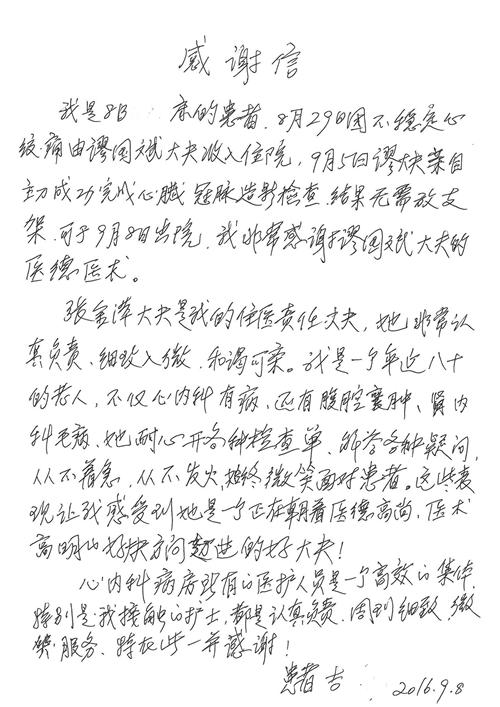 感谢信
我是8B 床的患者，8月29日因不稳定心
绞痛由谬国斌大夫收入住院，9月5日谬大夫亲自
主动成功完成心臓冠脉造影检查，结果无需放支
架，可于9月8日出院，我非常感谢谬国斌大夫的
医德医术。
张金萍大夫是我的住医责任大夫，她非常认
真负责、细致入微、和谒可亲。我是一个年近八十
的老人，不仅心内科有病，还有腹腔囊肿、肾内
科毛病，她耐心开各种检查单、解答各种疑问，
从不着急，从不发火，始终微笑面对患者。这些表
现让我感受到她是一个正在朝着医德高尚、医术
高明的好方向的好大夫！
心内科病房所有的医护人员是一个高效的集体，
特别是我接触的护士，都是认真负责、周到细致、微
笑服务、特在此一并感谢！
患者 吉 2016.9.8